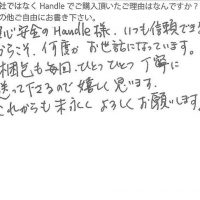 社ではなく Handle でご購入頂いたご理由はなんですか？
の他ご自由にお書き下さい。
心安全のHandle様、いつも信頼でき
からこそ、何度かお世話になっています。
梱包も毎回、ひとつひとつ丁寧に
送って下さるので嬉しく思います。
これからも末永くよろしくお願いします。